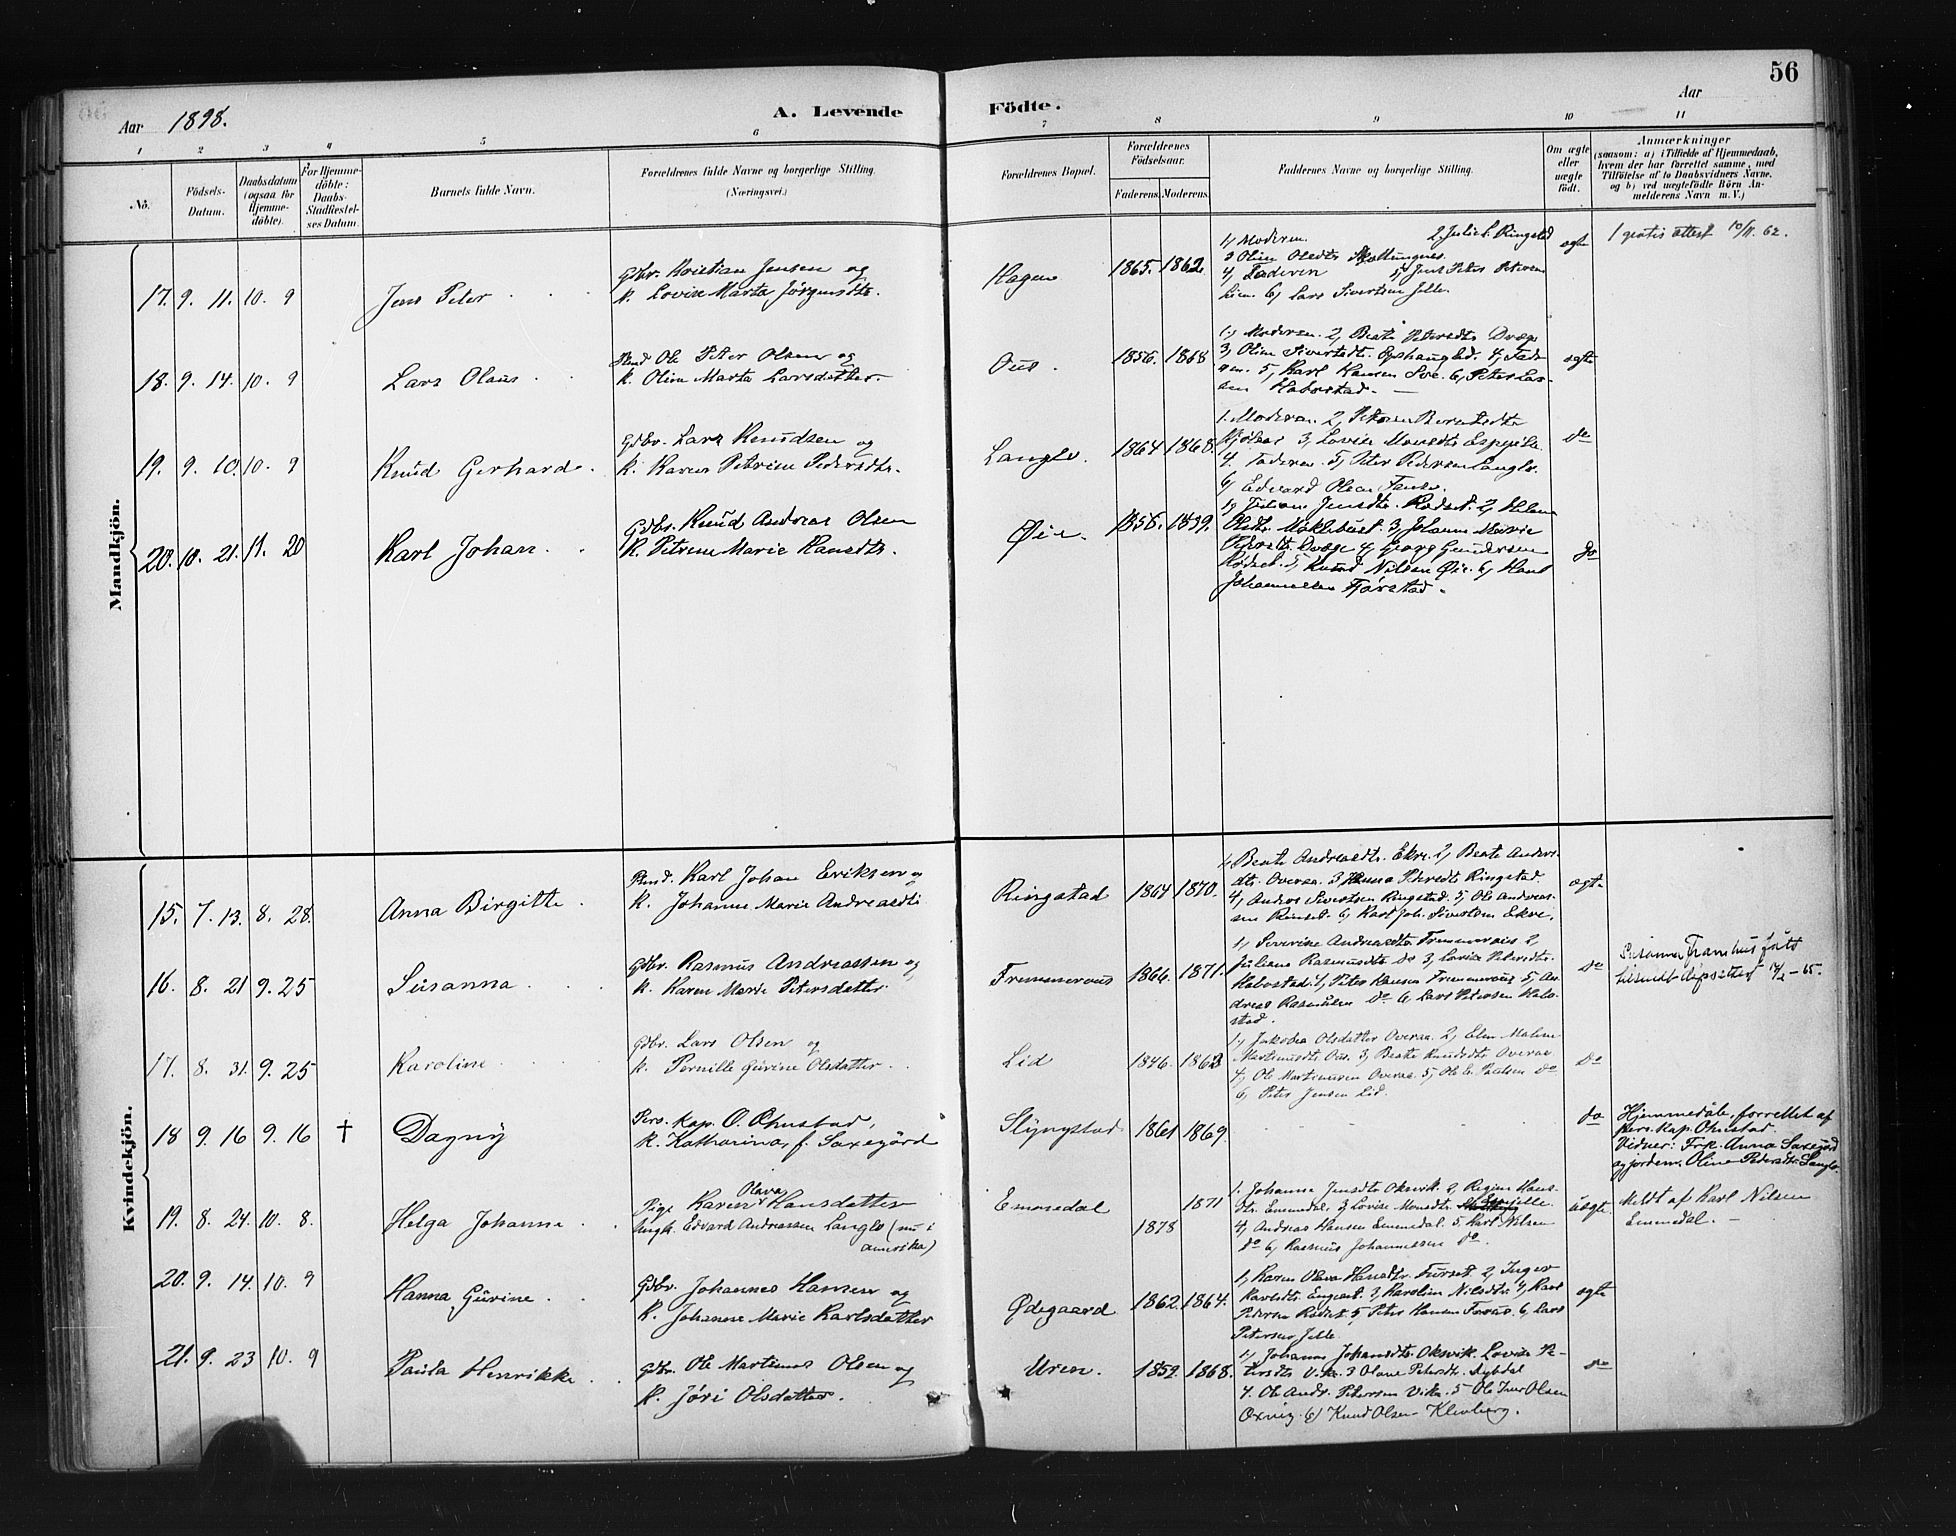 56
Aar 1898.
A. Levende Födte.
Aar
1 2 3 4 5 6 7 8 9 10 11
No.
Födsels-Datum.
Daabsdatum (ogsaa for Hjemmedöbte).
For Hjemmedöbte: Daabs-Stadfæstelses Datum.
Barnets fulde Navn.
Forældrenes fulde Navne og borgerlige Stilling.
(Næringsvei.)
Forældrenes Bopæl.
Forældrenes Födselsaar.
Faderens. Moderens.
Faddernes Navne og borgerlige Stilling.
Om ægte eller uægte födt.
Anmærkninger
(saasom: a) i Tilfælde af Hjemmedaab, hvem der har forrettet samme, med Tilföielse af to Daabsvidners Navne, og b) ved uægtefödte Börn Anmelderens Navn m. V.)
Mandkjön.
17. 9. 11. 10. 9
Jens Peter
Gdbr. Kristian Jensen og
K. Lovise Marta Jørgensdtr.
Hagen
1865. 1862.
1, Moderen. 2, Ringstad
4, Faderen 5, Jens Peter Petersen
6, Lars Sivertsen Jelle.
ægte
1 gratis attest 10/11. 62.
18. 9. 14. 10. 9
Lars Olaus
Ole Peter Olsen og
K. Oline Marta Larsdatter.
Ous
1856. 1868
1, Moderen. 2, Beate Petersdtr
3, Oline Sivertsdt. 4, Fade-
ren. 5, Karl Hansen 6, Peter Lar-
sen Habostad.
ægte
19. 9. 10. 10. 9
Knud Gerhard
Gdbr. Lars Knudsen og
K. Karen Petrine Pedersdtr.
Langlo.
1864 1868.
1. Moderen. 2,
3, Lovise Monsdtr
4. Faderen. 5, Peter Pedersen Langlo.
6, Edvard Olsen
do
20. 10. 21. 11. 20
Karl Johan
Gdbr. Knud Andreas Olsen
K. Petrine Marie Hansdtr.
Øie.
1856. 1859.
1, Jensdtr. Rødset. 2,
3, Johanne Marie
4, Georg Gundersen
Rødset. 5, Knud Nilsen Øie. 6,
Johannessen Fjørstad.
do
Kvindekjön.
15. 7. 13. 8. 28.
Anna Birgitte
Karl Johan Eriksen og
K. Johanne Marie Andreasdt.
Ringstad
1864 1870.
1, Beate Andreasdtr. Ekre. 2, Beate Anders-
dtr. Overaa. 3, Petersdtr Ringstad
4, Andres Sivertsen Ringstad. 5, Ole Andreas-
sen 6, Karl Joh. Sivertsen Ekre.
ægte
16. 8. 21 9. 25
Susanna
Gdbr. Rasmus Andreassen og
K. Karen Marie Petersdatter.
Fremmeraus
1866. 1871.
1, Severine Andreasdtr 2,
Juliane Rasmusdtr do 3, Lovise Petersdtr.
Habostad. 4, Peter Hansen 5, An-
dreas Rasmussen do 6, Lars Petersen Habo-
stad.
do
Susanna Framhus født
17. 8. 31. 9. 25
Karoline
Gdbr. Lars Olsen og
K. Pernille Gurine Olsdatter.
Lid
1846. 1863
1, Jakobea Olsdatter Overaa. 2, Elen Malene
Martinusdt. Ous. 3, Beate Knudsdtr Overaa
4, Ole Martinussen Overaa. 5, Ole L. Paulsen do
6, Peter Jensen Lid.
do
18 9. 16 9. 16 †
Dagny
Pers. kap. O. Ohnstad,
K. Katharina, f. Saxegård
Slyngstad
1861 1869
do
Hjemmedåb, forrettet af
pers. kap. Ohnstad.
Vidner: Frk. Anna Saxegård
og jordem. Oline Pedersdtr. Langlo.
19. 8. 24. 10. 8.
Helga Johanne
Pige Karen Olava Hansdatter
Ungk. Edvard Andreassen Langlo (nu i
Amerika)
Emmedal
1878 1871
1. Johanne Jensdtr. Oksvik. 2, Regine Hans-
dtr. Emmedal. 3, Lovise Monsdtr.
4, Andreas Hansen Emmedal. 5, Karl Nilsen
do 6, Rasmus Johannessen do.
uægte
Meldt af Karl Nilsen
Emmedal.
20. 9. 14. 10. 9
Hanna Gurine
Gdbr. Johannes Hansen og
K. Johanne Marie Karlsdatter
Ødegaard
1862. 1864.
1, Karen Olava Hansdtr. Furset. 2, Inger
Karlsdtr. Engeset. 3, Karoline Nilsdtr. 4, Karl
Pedersen Rødset. 5, Peter Hansen 6, Lars
Petersen Jelle
ægte
21. 9. 23 10. 9
Paula Henrikke
Gdbr. Ole Martinus Olsen og
K. Jøri Olsdatter.
Uren.
1852. 1868.
1, Johanne Johansdtr. Oksvik. Lovise Pe-
tersdtr 3 Olave Petersdt.
4. Ole Andr. Petersen 5 Ole Iver Olsen
6, Knud Olsen Klevberg.
do